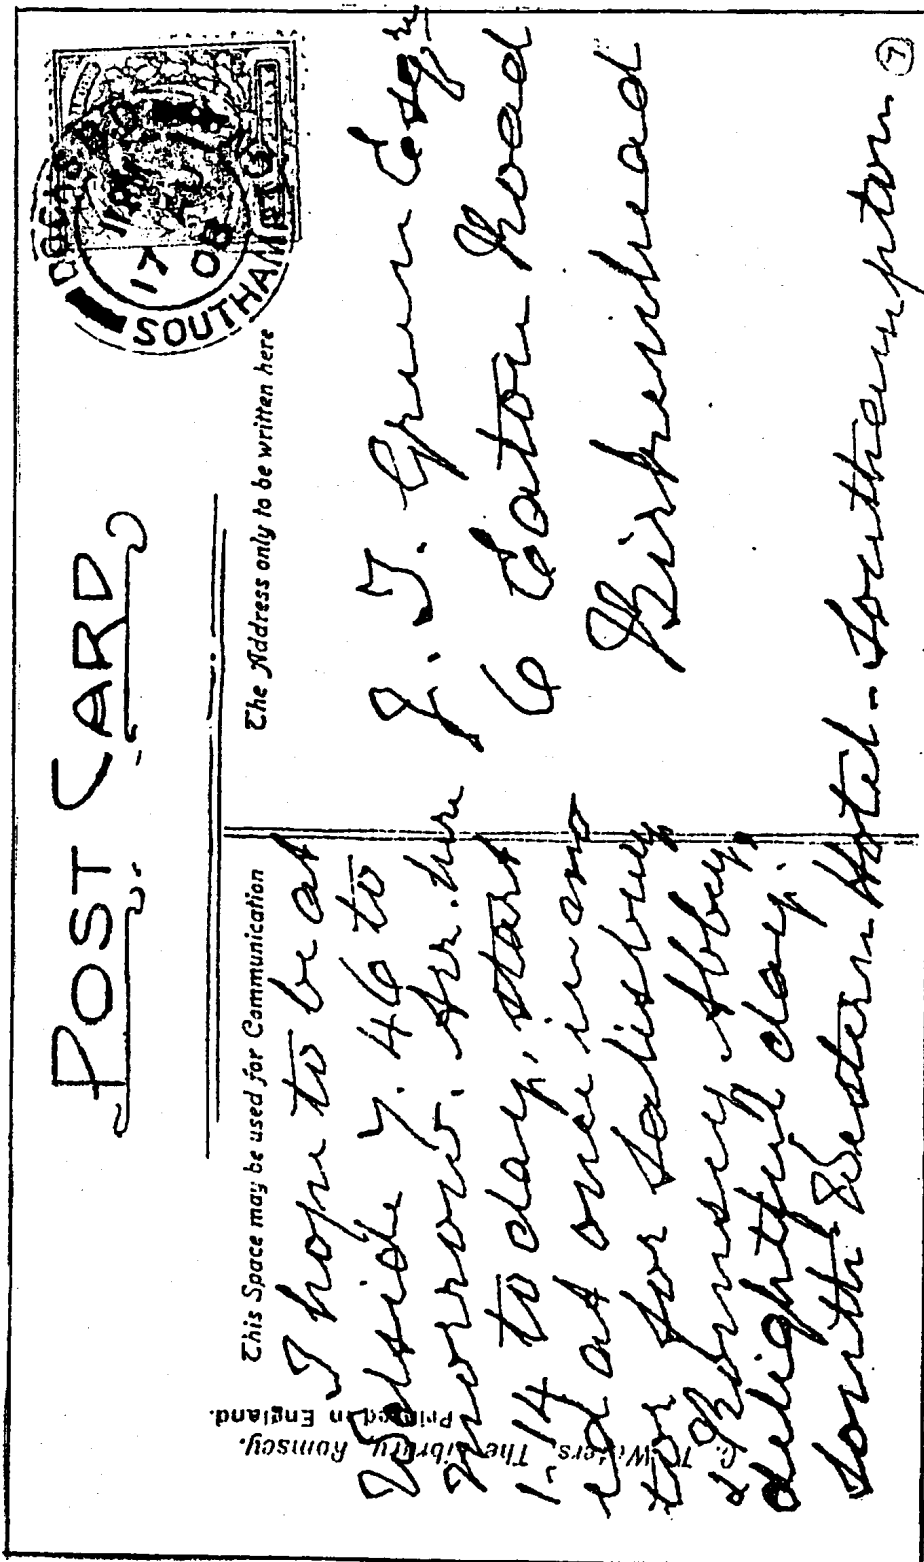 POST CARD
This Space may be used for Communication
The Address only to be written here
SOUTHAMPTON
17
08
I hope to be at
7.46 to
morrow. Arr. here
1-14 to day, start
ed at once in a mo
tor for Salisbury
& Romsey Abbey,
delightful day.
South Western Hotel - Southampton
J. T. Green Esqre
6 Eaton Road
Birkenhead
The Library, Romsey.
Printed in England.
7